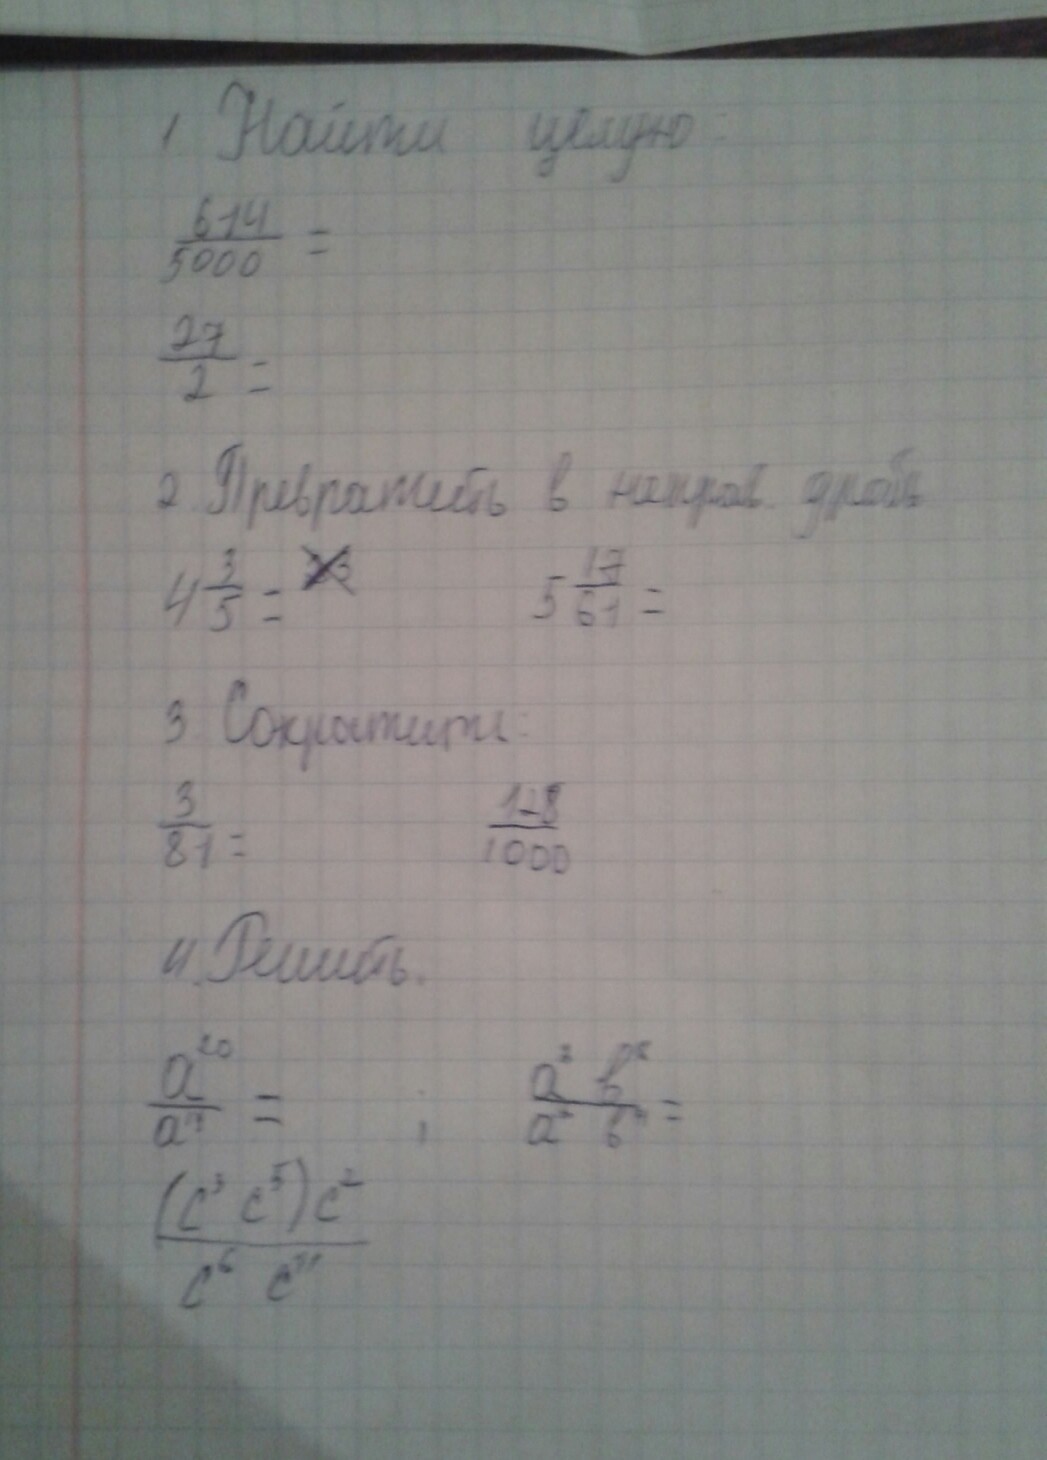 1 Найти целую:
614/5000 =
27/2 =
2 Превратить в неправ. дробь
4 3/5 = 5 17/61 =
3 Сократить:
3/81 = 128/1000
4. Решить.
a^20/a^ = ; a^3 b^/a^ b^ =
(c^3 c^5)c^2/c^6 c^11